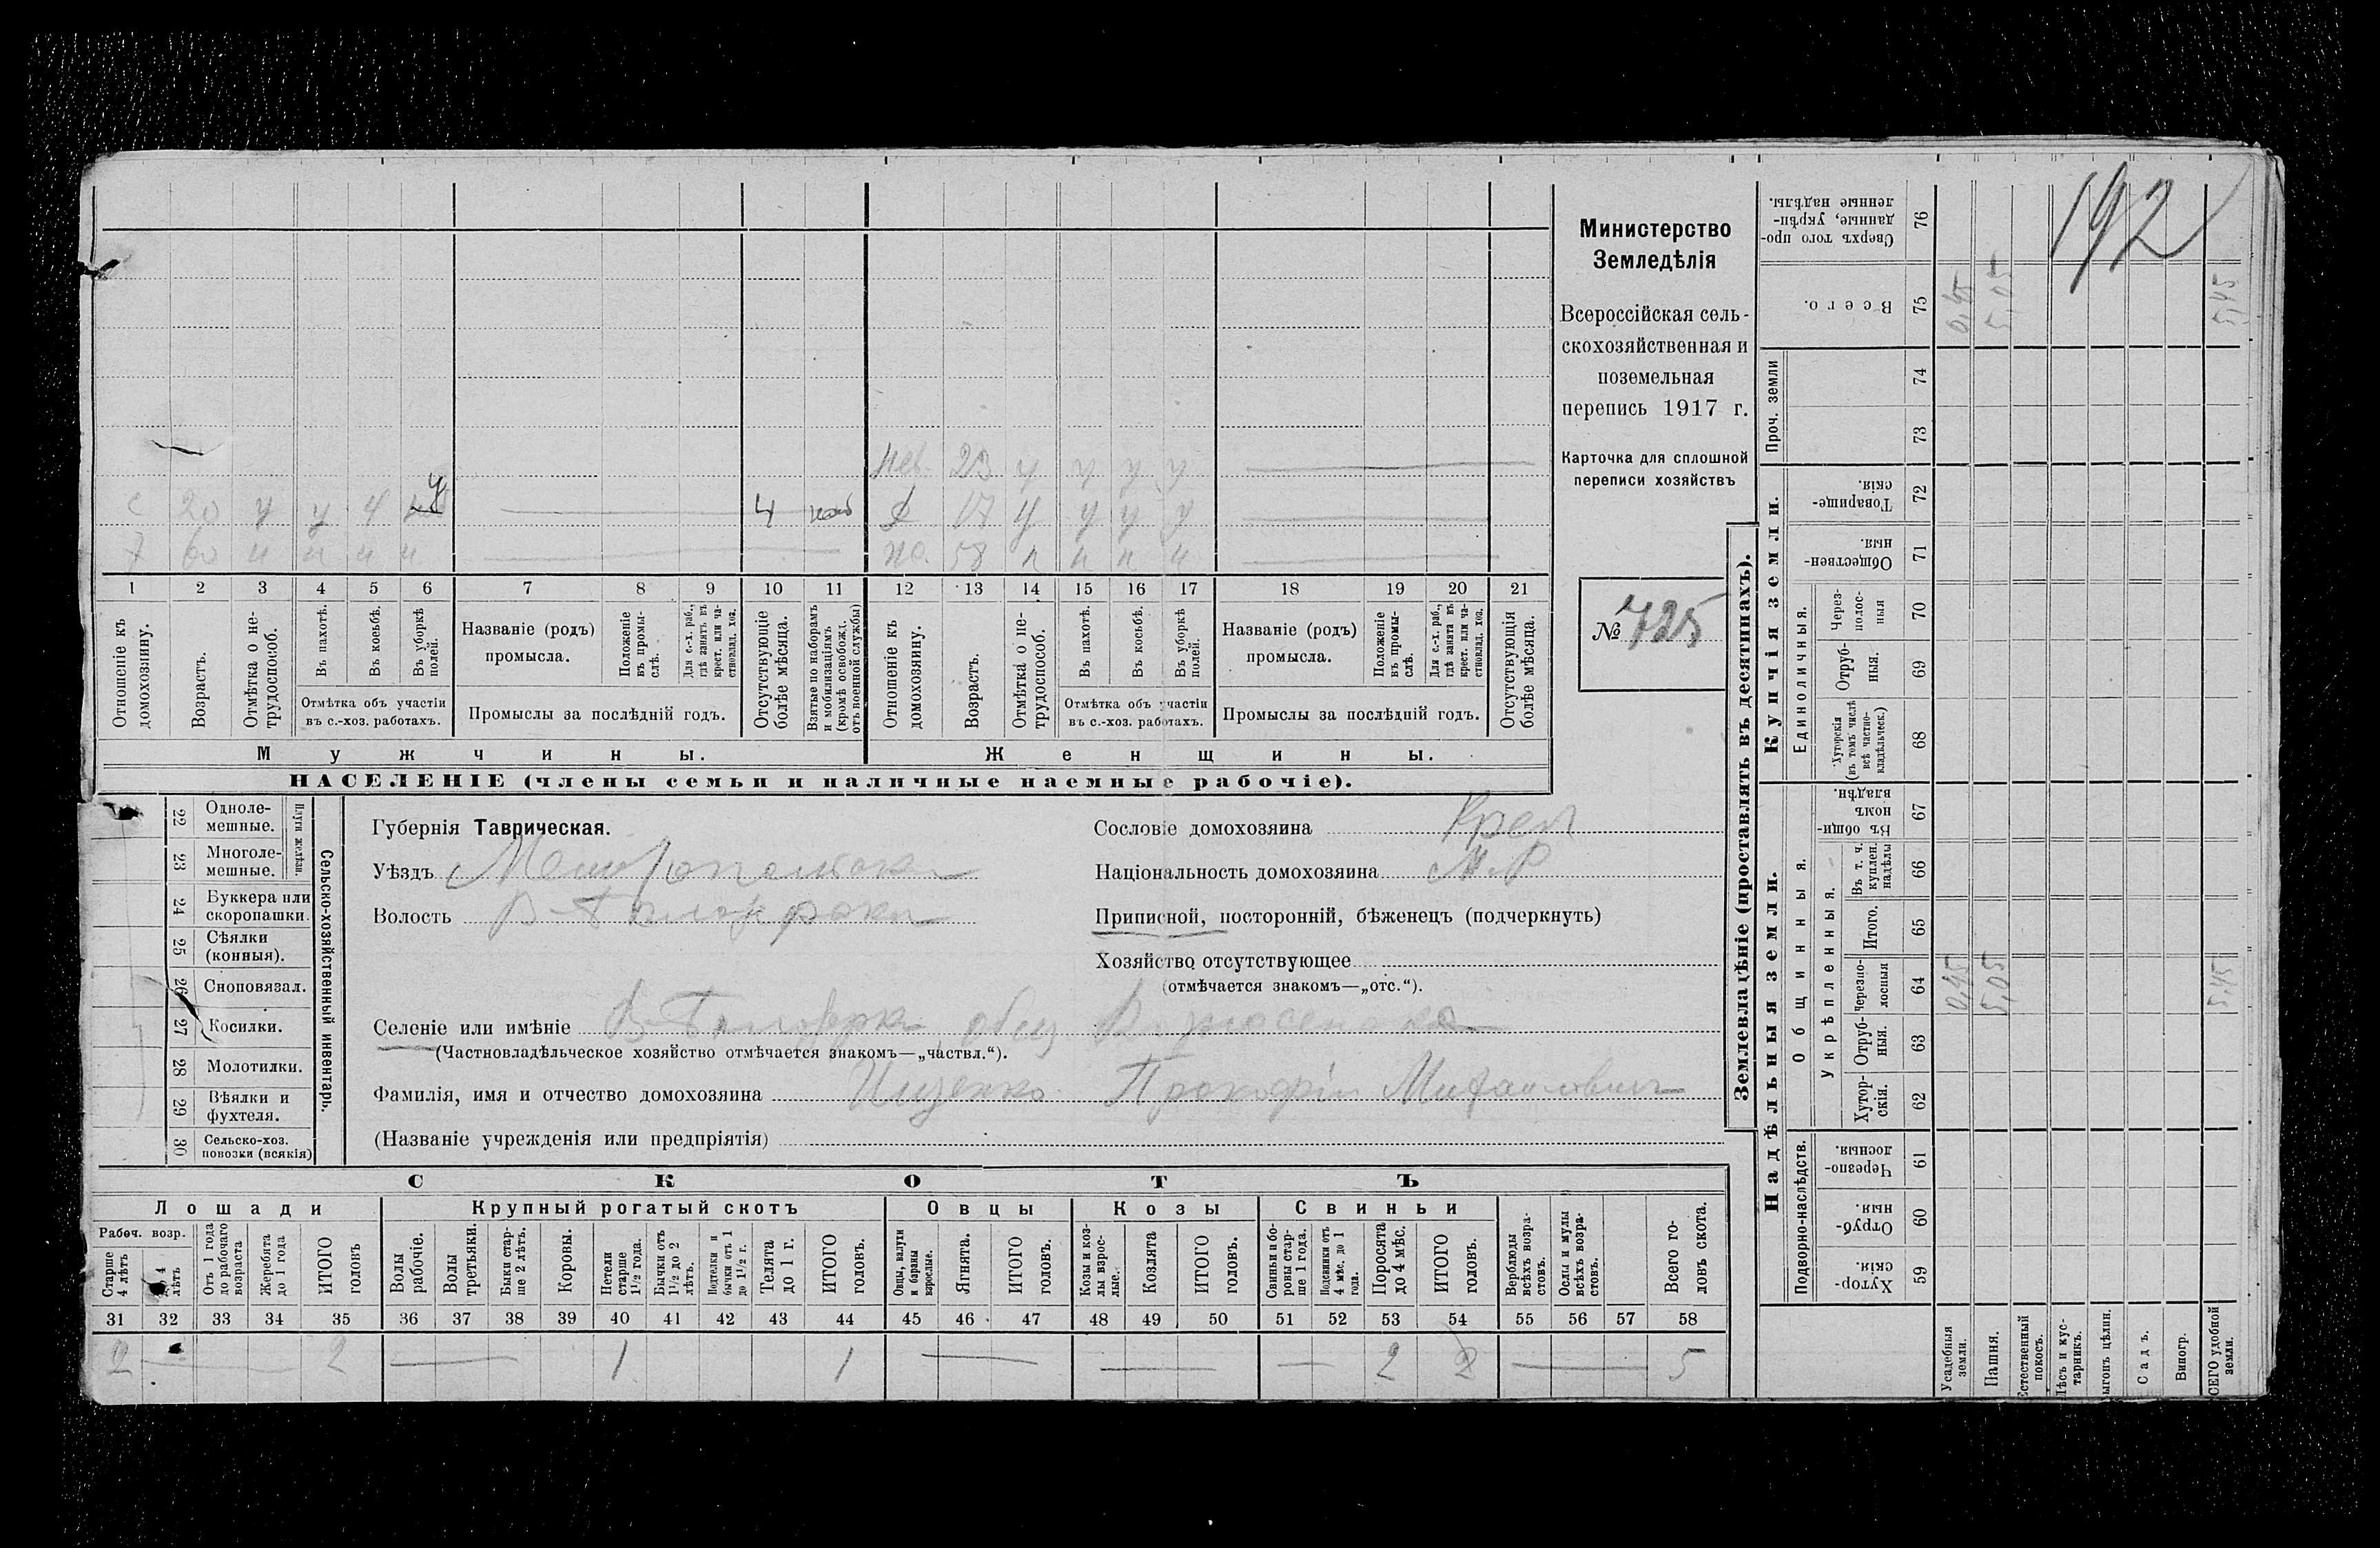 192
Министерство
Земледѣлія
Всероссійская сель-
скохозяйственная и
поземельная
перепись 1917 г.
Карточка для сплошной
переписи хозяйствъ
№ 725
нев. 23 у у у у
с 20 у у 4 у 4 Д 17 у у у у
60 ч ч ч ч 58 ч ч ч ч
1 2 3 4 5 6 7 8 9 10 11 12 13 14 15 16 17 18 19 20 21
Отношеніе къ домохозяину.
Возрастъ.
Отмѣтка о не-трудоспособ.
Въ пахотѣ.
Въ косьбѣ.
Въ уборкѣ полей.
Отмѣтка объ участіи въ с.-хоз. работахъ.
Названіе (родъ) промысла.
Положеніе въ промы-слѣ.
Для с.-х. раб., гдѣ занятъ въ крест. или ча-стновлад. хоз.
Промыслы за послѣдній годъ.
Отсутствующіе болѣе мѣсяца.
Взятые по наборамъ и мобилизаціямъ (кромѣ освобожд. отъ военной службы)
Отношеніе къ домохозяину.
Возрастъ.
Отмѣтка о не-трудоспособ.
Въ пахотѣ.
Въ косьбѣ.
Въ уборкѣ полей.
Отмѣтка объ участіи въ с.-хоз. работахъ.
Названіе (родъ) промысла.
Положеніе въ промы-слѣ.
Для с.-х. раб., гдѣ занята въ крест. или ча-стновлад. хоз.
Промыслы за послѣдній годъ.
Отсутствующія болѣе мѣсяца.
Мужчины. Женщины.
НАСЕЛЕНІЕ (члены семьи и наличные наемные рабочіе).
22 Одноле-мешные.
23 Многоле-мешные.
Плуги желѣзн.
24 Буккера или скоропашки.
25 Сѣялки (конныя).
26 Сноповязал.
27 Косилки.
28 Молотилки.
29 Вѣялки и фухтеля.
30 Сельско-хоз. повозки (всякія)
Сельско-хозяйственный инвентарь.
Губернія Таврическая.
Уѣздъ Мелитопольскій
Волость В-Бѣлозерская
Сословіе домохозяина Крест
Національность домохозяина М.Р
Приписной, посторонній, бѣженецъ (подчеркнуть)
Хозяйство отсутствующее
(отмѣчается знакомъ—„отс.“).
Селеніе или имѣніе В-Бѣлозерка общ.
(Частновладѣльческое хозяйство отмѣчается знакомъ—„частвл.“).
Фамилія, имя и отчество домохозяина Ищенко Прокофій Михайловичъ
(Названіе учрежденія или предпріятія)
СКОТЪ
Лошади Крупный рогатый скотъ Овцы Козы Свиньи
Рабоч. возр.
Старше 4 лѣтъ
До 4 лѣтъ
Отъ 1 года до рабочаго возраста
Жеребята до 1 года
ИТОГО головъ
Волы рабочіе.
Волы третьяки.
Быки стар-ше 2 лѣтъ.
Коровы.
Нетели старше 1½ года.
Бычки отъ 1½ до 2 лѣтъ.
Подтелки и бычки отъ 1 до 1½ г.
Телята до 1 г.
ИТОГО головъ.
Овцы, валухи и бараны взрослые.
Ягнята.
ИТОГО головъ.
Козы и коз-лы взрос-лые.
Козлята
ИТОГО головъ.
Свиньи и бо-ровы стар-ше 1 года.
Подсвинки отъ 4 мѣс. до 1 года.
Поросята до 4 мѣс.
ИТОГО головъ.
Верблюды всѣхъ возра-стовъ.
Ослы и мулы всѣхъ возра-стовъ.
Всего го-ловъ скота.
31 32 33 34 35 36 37 38 39 40 41 42 43 44 45 46 47 48 49 50 51 52 53 54 55 56 57 58
2 2 1 1 2 2 5
Землевладѣніе (проставлять въ десятинахъ).
Купчія земли.
Надѣльныя земли.
Проч. земли
Единоличныя.
Общинныя.
Укрѣпленныя.
Подворно-наслѣдств.
Сверхъ того про-данные, укрѣп-ленные надѣлы. 76
Всего. 75 0,45 5,05 5,45
74
73
Товарище-скія. 72
Обществен-ныя. 71
Через-полос-ныя 70
Отруб-ныя. 69
Хуторскія (въ томъ числѣ всѣ частно-владѣльческ.) 68
Въ общин-номъ владѣн. 67
Въ т. ч. куплен. надѣлы 66
Итого. 65
Черезпо-лосныя 64 0,45 5,05 5,45
Отруб-ныя. 63
Хутор-скія. 62
Черезпо-лосныя. 61
Отруб-ныя. 60
Хутор-скія. 59
Усадебныя земли.
Пашня.
Естественный покосъ.
Лѣсъ и кус-тарникъ.
ыгонъ цѣлин.
Садъ.
Виногр.
СЕГО удобной земли.